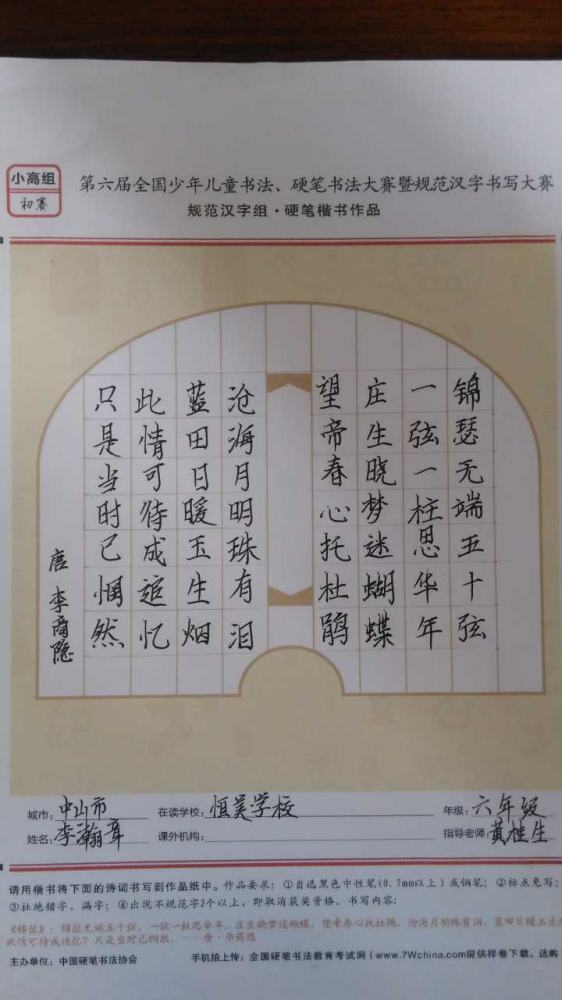 小高组
初赛
第六届全国少年儿童书法、硬笔书法大赛暨规范汉字书写大赛
规范汉字组·硬笔楷书作品
锦瑟无端五十弦
一弦一柱思华年
庄生晓梦迷蝴蝶
望帝春心托杜鹃
沧海月明珠有泪
蓝田日暖玉生烟
此情可待成追忆
只是当时已惘然
唐 李商隐
城市：中山市 在读学校：恒吴学校 年级：六年级
姓名：李瀚章 课外机构： 指导老师：黄桂生
请用楷书将下面的诗词书写到作品纸中。作品要求：①自选黑色中性笔(0.7mm以上)或钢笔；②标点免写；
③杜绝错字、漏字；④出现不规范字2个以上，即取消获奖资格。书写内容：
《锦瑟》：锦瑟无端五十弦，一弦一柱思华年。庄生晓梦迷蝴蝶，望帝春心托杜鹃。沧海月明珠有泪，蓝田日暖玉生
此情可待成追忆？只是当时已惘然。——唐·李商隐
主办单位：中国硬笔书法协会 手机拍上传：全国硬笔书法教育考试网（www.7Wchina.com提供样卷下载、选购